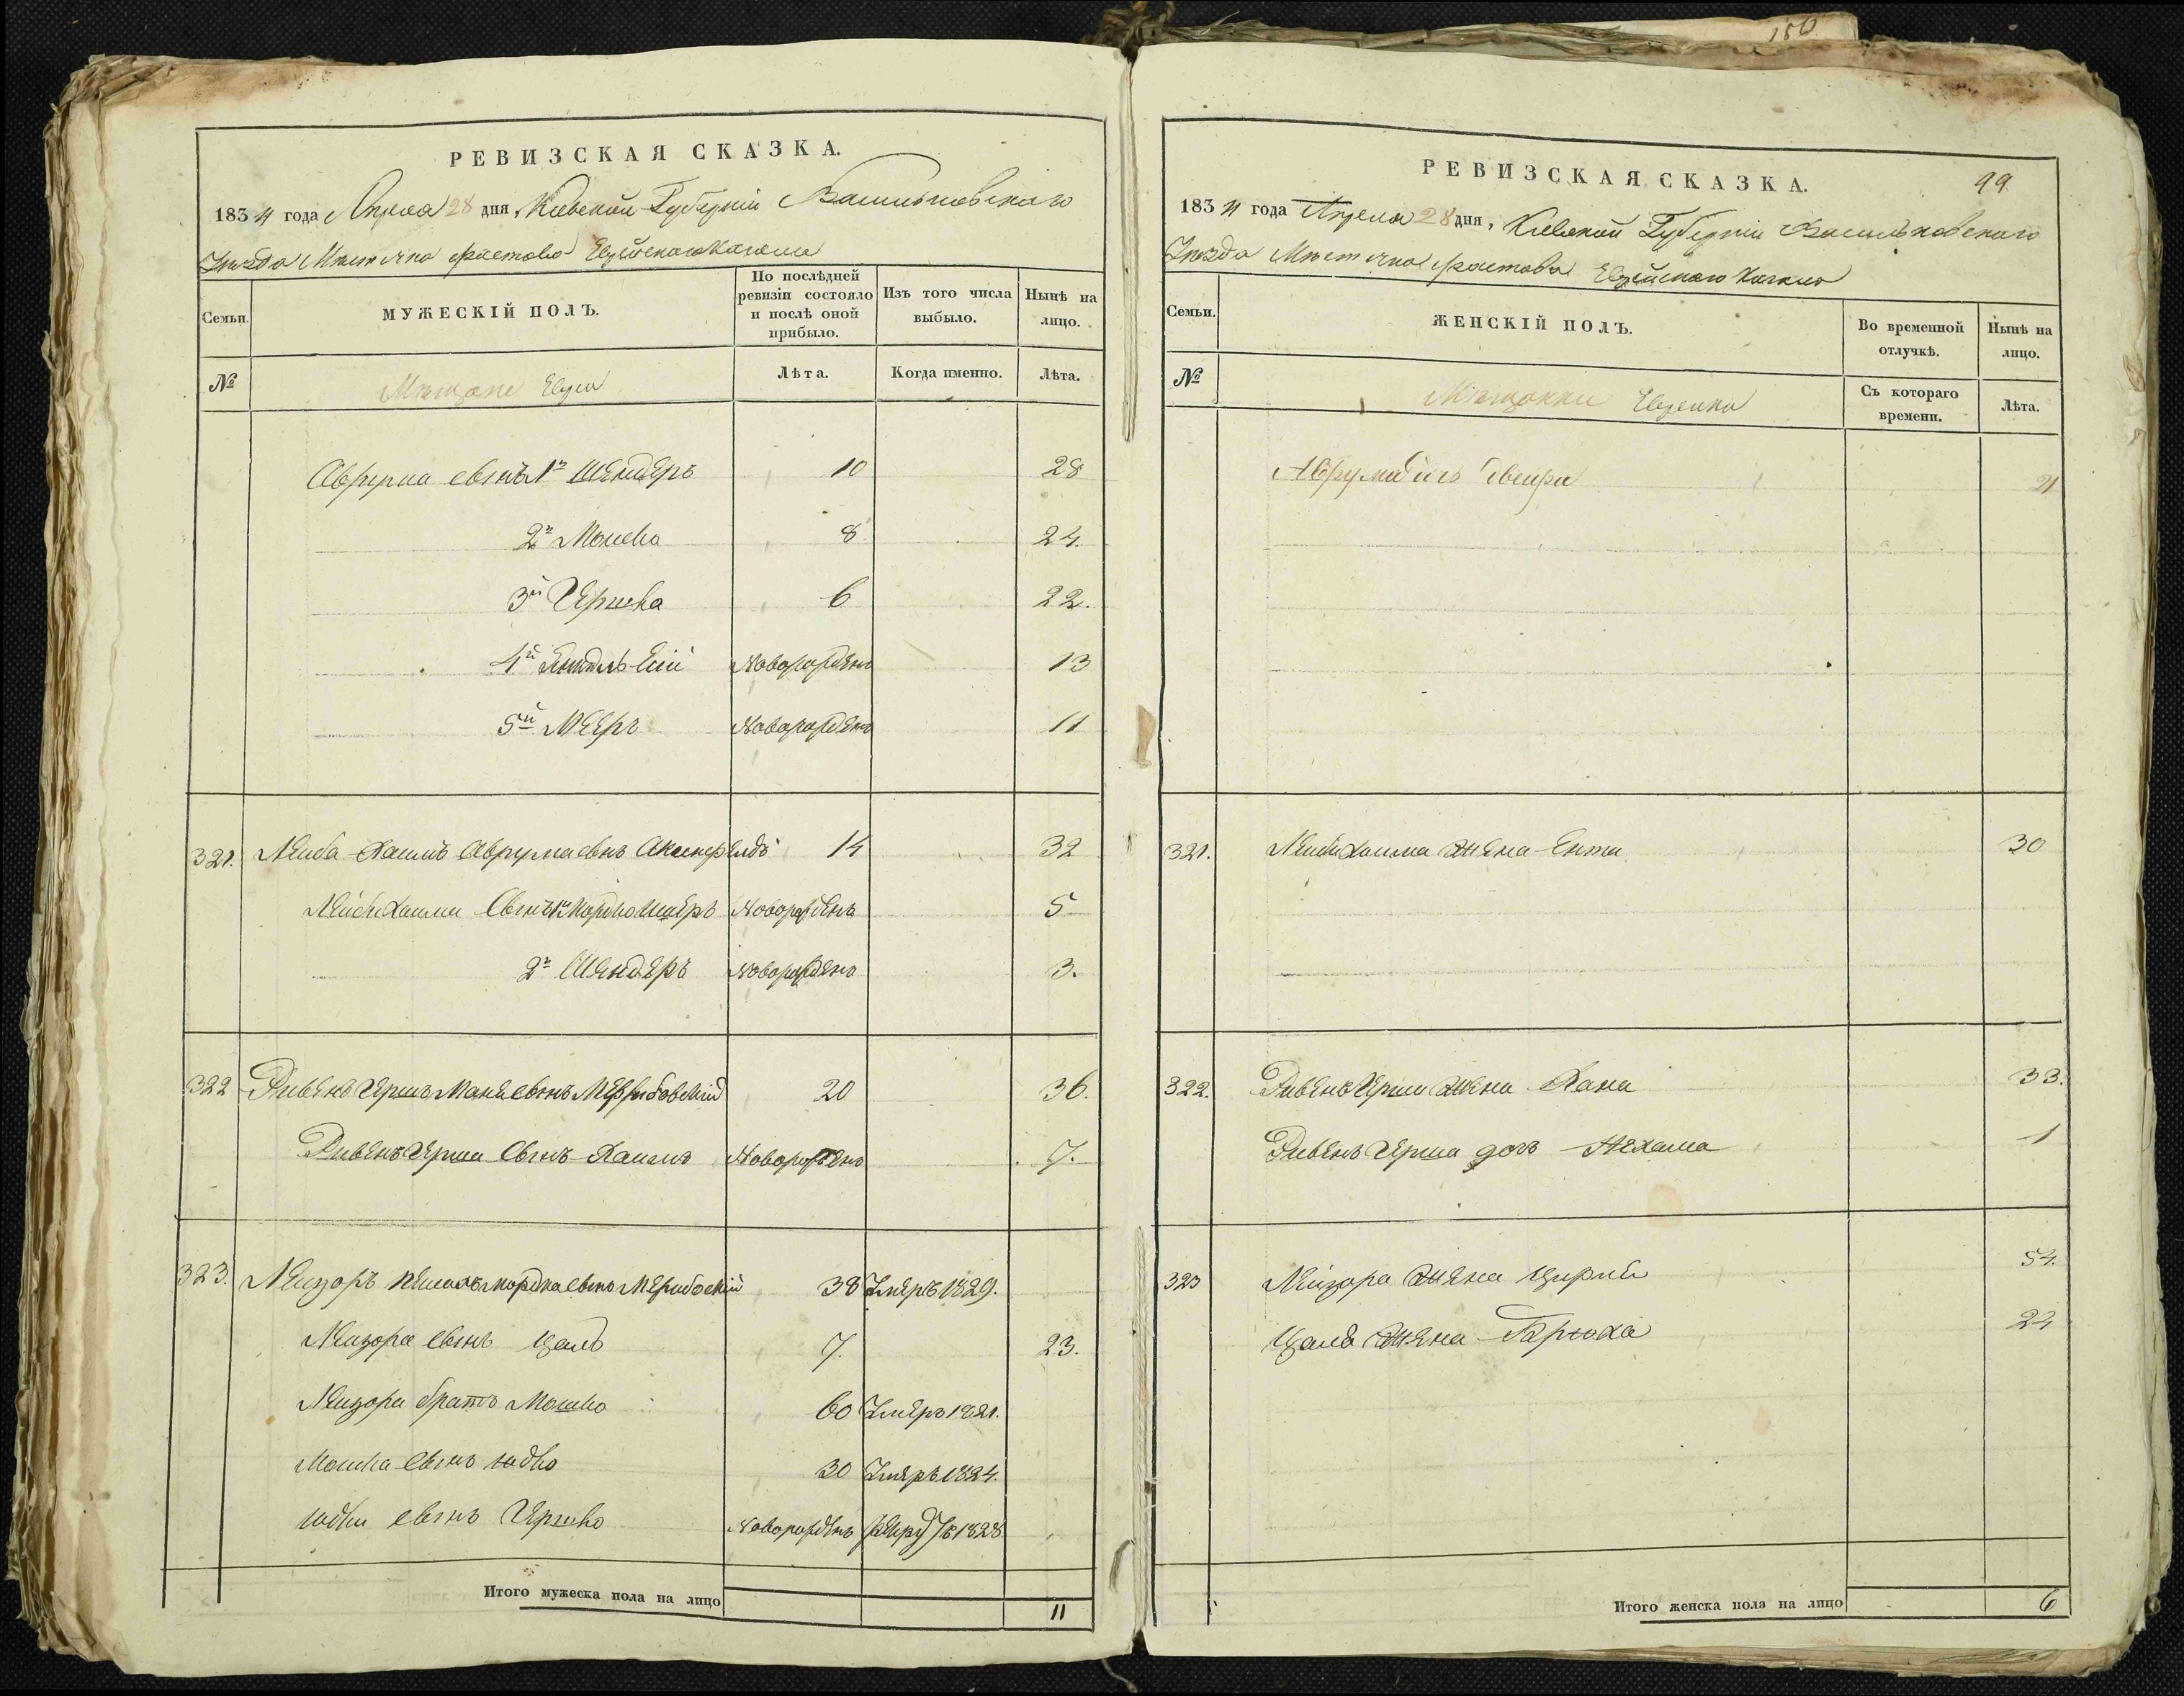 150
РЕВИЗСКАЯ СКАЗКА.
1834 года Апреля 28 дня, Киевской Губернiи Васильковского
Уезда Местечка Фастова Еврейского Кагала
Семьи.
МУЖЕСКIЙ ПОЛЪ.
По послѣдней ревизiи состояло и послѣ оной прибыло.
Изъ того числа выбыло.
Нынѣ на лицо.
№
Мѣщане Евреи
Лѣта.
Когда именно.
Лѣта.
Аврума сынъ 1й Шендеръ 10 28
2й Мошко 8 24.
3й Гершко 6 22.
4й Новорожденъ 13
5й Мееръ Новорожденъ 11
321. Лейба Хаимъ Аврума сынъ 14 32
Лейби Хаима сынъ 1й Мордко Новорожденъ 5
2й Шендеръ Новорожденъ 3.
322 Рывенъ Гершъ сынъ 20 36.
Рывенъ Герша сынъ Хаимъ Новорожденъ 7.
323. Лейзоръ Мордка сынъ 38 Умеръ 1829.
Лейзора сынъ Цаль 7. 23.
Лейзора братъ Мошко 60 Умеръ 1821.
Мошка сынъ Юдко 30 Умеръ 1824.
Юдки сынъ Гершко Новорожденъ 1828
Итого мужеска пола на лицо 11
РЕВИЗСКАЯ СКАЗКА.
99.
1834 года Апреля 28 дня, Киевской Губернiи Васильковского
Уезда Местечка Фастова Еврейского Кагала
Семьи.
ЖЕНСКIЙ ПОЛЪ.
Во временной отлучкѣ.
Нынѣ на лицо.
№
Мѣщанки Еврейки
Съ котораго времени.
Лѣта.
Аврума дочь Двейра 21
321. Лейби Хаима жена Ента 30
322. Рывенъ Герша жена Хана 33.
Рывенъ Герша дочь Нехама 1
323 Лейзора жена 54.
Цаля жена Бруха 24
Итого женска пола на лицо 6